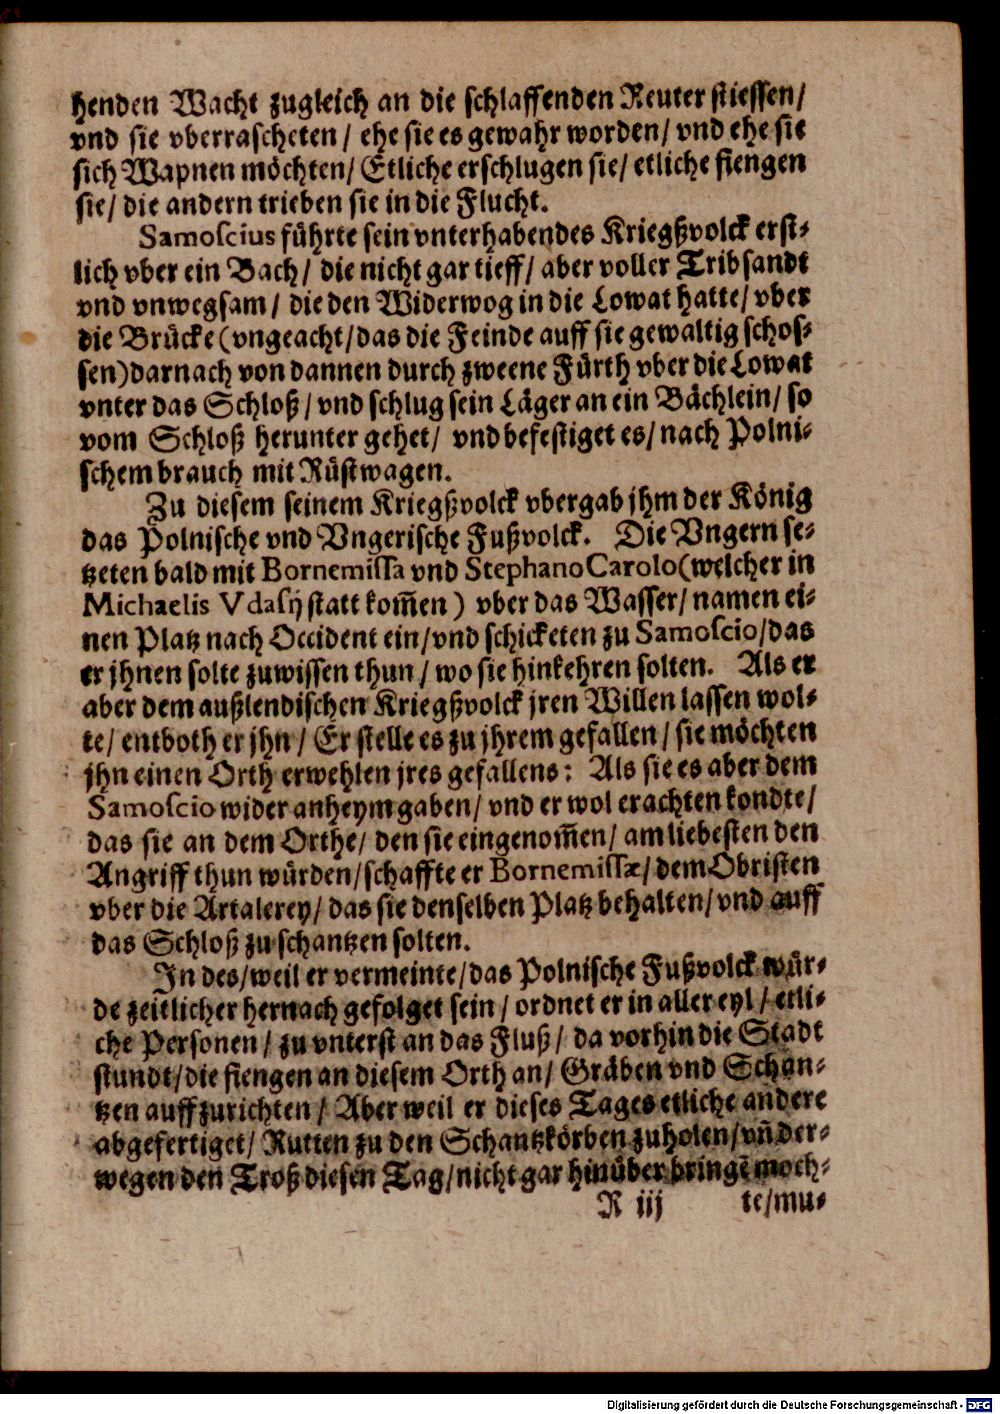 henden Wacht zugleich an die schlaffenden Reuter stiessen/
vnd sie vberrascheten/ ehe sie es gewahr worden/ vnd ehe sie
sich Wapnen möchten/ Etliche erschlugen sie/ etliche fiengen
sie/ die andern trieben sie in die Flucht.
Samoscius führte sein vnterhabendes Kriegßvolck erst-
lich vber ein Bach/ die nicht gar tieff/ aber voller Tribsandt
vnd vnwegsam/ die den Widerwog in die Lowat hatte/ vber
die Brücke (vngeacht/ das die Feinde auff sie gewaltig schos-
sen) darnach von dannen durch zweene Fürth vber die Lowat
vnter das Schloß/ vnd schlug sein Läger an ein Bächlein/ so
vom Schloß herunter gehet/ vnd befestiget es/ nach Polni-
schem brauch mit Rüstwagen.
Zu diesem seinem Kriegßvolck vbergab jhm der König
das Polnische vnd Vngerische Fußvolck. Die Vngern se-
tzeten bald mit Bornemissa vnd Stephano Carolo (welcher in
Michaelis Vdasij statt kom̃en) vber das Wasser/ namen ei-
nen Platz nach Occident ein/ vnd schicketen zu Samoscio/ das
er jhnen solte zuwissen thun/ wo sie hinkehren solten. Als er
aber dem außlendischen Kriegßvolck jren Willen lassen wol-
te/ entboth er jhn/ Er stelle es zu jhrem gefallen/ sie möchten
jhn einen Orth erwehlen jres gefallens: Als sie es aber dem
Samoscio wider anheym gaben/ vnd er wol erachten kondte/
das sie an dem Orthe/ den sie eingenom̃en/ am liebesten den
Angriff thun würden/ schaffte er Bornemissæ/ dem Obristen
vber die Artalerey/ das sie denselben Platz behalten/ vnd auff
das Schloß zu schantzen solten.
In des/ weil er vermeinte/ das Polnische Fußvolck wür-
de zeitlicher hernach gefolget sein/ ordnet er in aller eyl/ etli-
che Personen/ zu vnterst an das Fluß/ da vorhin die Stadt
stundt/ die fiengen an diesem Orth an/ Gräben vnd Schan-
tzen auffzurichten/ Aber weil er dieses Tages etliche andere
abgefertiget/ Rutten zu den Schantzkörben zuholen/ vñ der-
wegen den Troß diesen Tag/ nicht gar hinüber bringẽ moch-
R iij te/ mu-
Digitalisierung gefördert durch die Deutsche Forschungsgemeinschaft - DFG